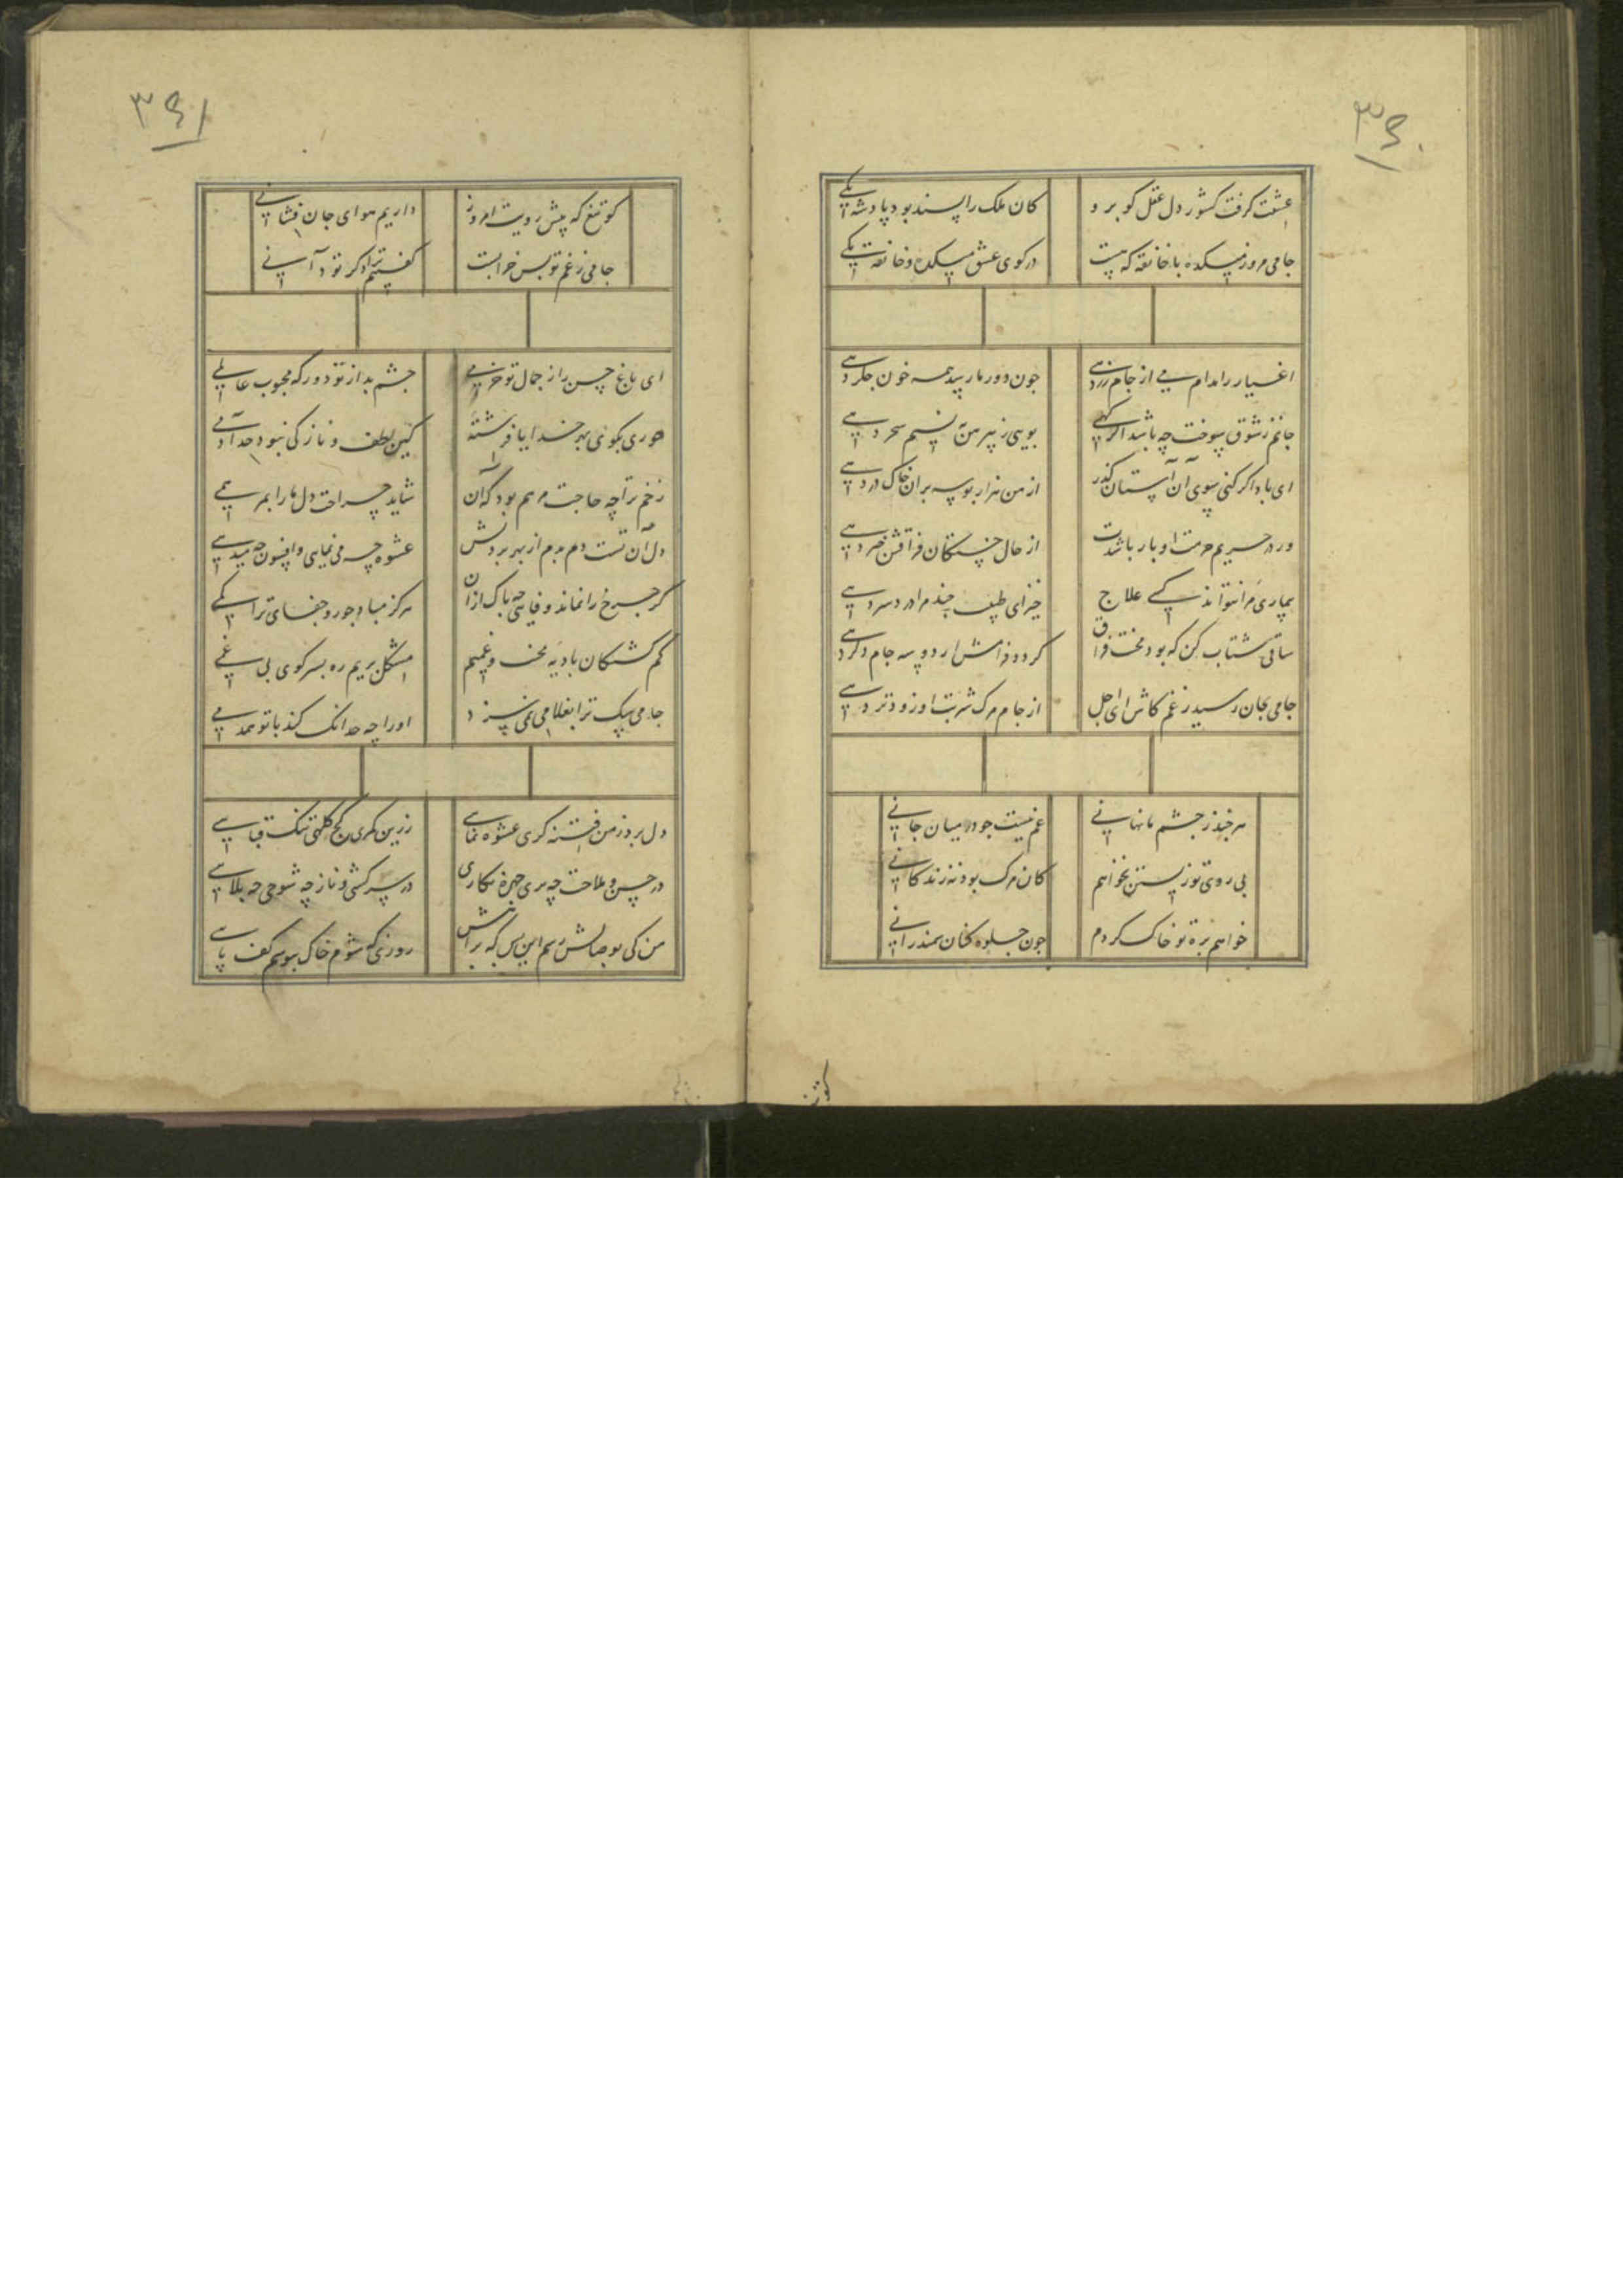 ۳۶۰
عشقت کرفت کشور دل عقل کو برو
کان ملک را بسند بود پادشه یکی
جامی مرو ز میکده با خانقه که هست
در کوی عشق میکده و خانقه یکی
اغیار را مدام می از جام زر دهی
چون دور ما رسد همه خون جکر دهی
جانم ز شوق سوخت چه باشد اکر کهی
بویی ز پیرهن به نسیم سحر دهی
ای باد اکر کنی سوی آن آستان کذر
از من هزار بوسه بران خاک در دهی
ور در حریم حرمت او بار باشدت
از حال خستکان فراقش خبر دهی
بیماری مرا نتواند کسی علاج
خیز ای طبیب چند مرا درد سر دهی
ساقی شتاب کن که بود محنت فراق
کردد فرامش ار دو سه جام دکر دهی
جامی بجان رسید ز غم کاش ای اجل
از جام مرک شربت او زودتر دهی
هر چند ز چشم ما نهانی
غم نیست چو در میان جانی
بی روی تو زیستن نخواهم
کان مرک بود نه زندکانی
خواهم بره تو خاک کردم
چون جلوه کنان سمند رانی
کو تیغ
۳۶۱
کو تیغ که پیش رویت امروز
داریم هوای جان فشانی
جامی ز غم تو بس خرابست
کفتیم ترا دکر تو دانی
ای باغ حسن را ز جمال تو خرمی
چشم بد از تو دور که محبوب عالمی
حوری بکوی بهر خدا یا فرشته
کین لطف و نازکی نبود حد آدمی
زخم ترا چه حاجت مرهم بود که آن
شاید جراحت دل ما را بمرهمی
دل آن تست دم بدم از بهر بردنش
عشوه چه می نمایی و افسون چه میدمی
کر چرخ را نماند وفایی چه باک ازان
هرکز مباد جور و جفای ترا کمی
کم کشتکان بادیه محنت و غمیم
مشکل بریم ره بسر کوی بی غمی
جامی سک ترا بغلامی نمی سزد
او را چه حد آنک کند با تو همدمی
دل برد ز من فتنه کری عشوه نمایی
زرین کمری کج کلهی تنک قبایی
در حسن و ملاحت چه پری چهره نکاری
در سرکشی و ناز چه شوخی چه بلایی
من کی بوصالش رسم این بس که براهش
روزی که شوم خاک ببوسم کف پایی